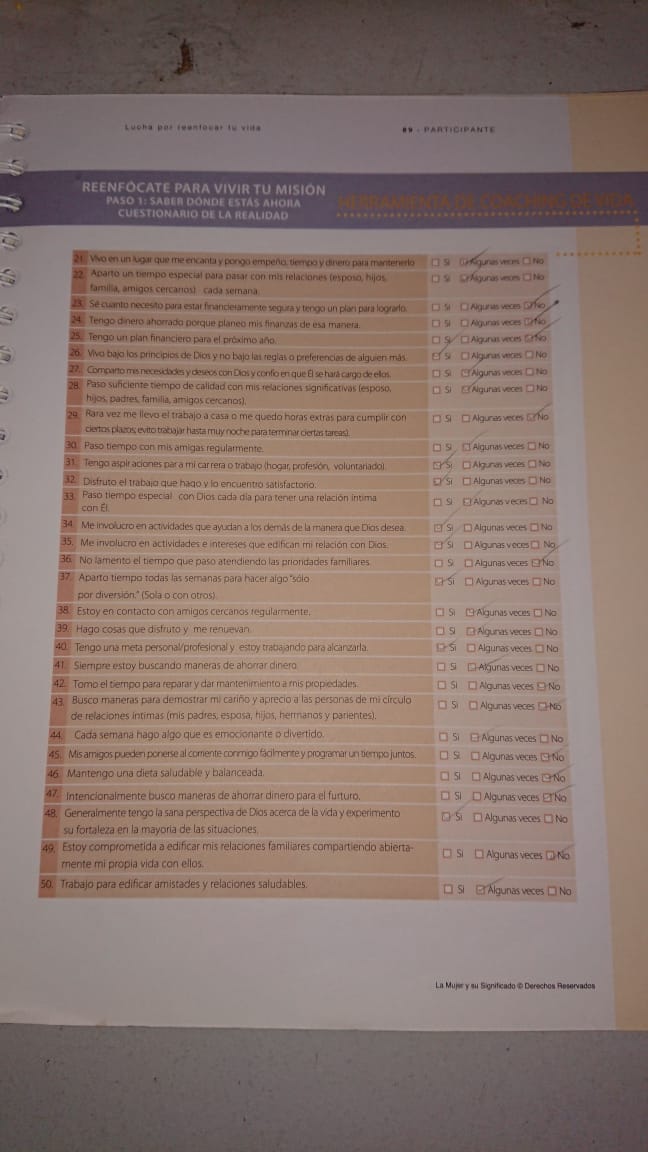 Lucha por reenfocar tu vida
89 - PARTICIPANTE
REENFÓCATE PARA VIVIR TU MISIÓN
PASO 1: SABER DÓNDE ESTÁS AHORA
CUESTIONARIO DE LA REALIDAD
HERRAMIENTA DE COACHING DE VIDA
21. Vivo en un lugar que me encanta y pongo empeño, tiempo y dinero para mantenerlo □ Si ☑ Algunas veces □ No
22. Aparto un tiempo especial para pasar con mis relaciones (esposo, hijos, □ Si ☑ Algunas veces □ No
familia, amigos cercanos) cada semana.
23. Sé cuanto necesito para estar financieramente segura y tengo un plan para lograrlo. □ Si □ Algunas veces ☑ No
24. Tengo dinero ahorrado porque planeo mis finanzas de esa manera. □ Si □ Algunas veces ☑ No
25. Tengo un plan financiero para el próximo año. □ Si □ Algunas veces ☑ No
26. Vivo bajo los principios de Dios y no bajo las reglas o preferencias de alguien más. ☑ Si □ Algunas veces □ No
27. Comparto mis necesidades y deseos con Dios y confío en que Él se hará cargo de ellos. □ Si ☑ Algunas veces □ No
28. Paso suficiente tiempo de calidad con mis relaciones significativas (esposo, □ Si ☑ Algunas veces □ No
hijos, padres, familia, amigos cercanos).
29. Rara vez me llevo el trabajo a casa o me quedo horas extras para cumplir con □ Si □ Algunas veces ☑ No
ciertos plazos; evito trabajar hasta muy noche para terminar ciertas tareas).
30. Paso tiempo con mis amigas regularmente. □ Si ☑ Algunas veces □ No
31. Tengo aspiraciones para mi carrera o trabajo (hogar, profesión, voluntariado). ☑ Si □ Algunas veces □ No
32. Disfruto el trabajo que hago y lo encuentro satisfactorio. ☑ Si □ Algunas veces □ No
33. Paso tiempo especial con Dios cada día para tener una relación íntima □ Si ☑ Algunas veces □ No
con Él.
34. Me involucro en actividades que ayudan a los demás de la manera que Dios desea. ☑ Si □ Algunas veces □ No
35. Me involucro en actividades e intereses que edifican mi relación con Dios. ☑ Si □ Algunas veces □ No
36. No lamento el tiempo que paso atendiendo las prioridades familiares. □ Si □ Algunas veces ☑ No
37. Aparto tiempo todas las semanas para hacer algo "sólo ☑ Si □ Algunas veces □ No
por diversión." (Sola o con otros).
38. Estoy en contacto con amigos cercanos regularmente. □ Si ☑ Algunas veces □ No
39. Hago cosas que disfruto y me renuevan. □ Si ☑ Algunas veces □ No
40. Tengo una meta personal/profesional y estoy trabajando para alcanzarla. ☑ Si □ Algunas veces □ No
41. Siempre estoy buscando maneras de ahorrar dinero. □ Si ☑ Algunas veces □ No
42. Tomo el tiempo para reparar y dar mantenimiento a mis propiedades. □ Si □ Algunas veces ☑ No
43. Busco maneras para demostrar mi cariño y aprecio a las personas de mi círculo □ Si □ Algunas veces ☑ No
de relaciones íntimas (mis padres, esposa, hijos, hermanos y parientes).
44. Cada semana hago algo que es emocionante o divertido. □ Si ☑ Algunas veces □ No
45. Mis amigos pueden ponerse al corriente conmigo fácilmente y programar un tiempo juntos. □ Si □ Algunas veces ☑ No
46. Mantengo una dieta saludable y balanceada. □ Si □ Algunas veces ☑ No
47. Intencionalmente busco maneras de ahorrar dinero para el furturo. □ Si □ Algunas veces ☑ No
48. Generalmente tengo la sana perspectiva de Dios acerca de la vida y experimento ☑ Si □ Algunas veces □ No
su fortaleza en la mayoria de las situaciones.
49. Estoy comprometida a edificar mis relaciones familiares compartiendo abierta- □ Si □ Algunas veces ☑ No
mente mi propia vida con ellos.
50. Trabajo para edificar amistades y relaciones saludables. □ Si ☑ Algunas veces □ No
La Mujer y su Significado © Derechos Reservados